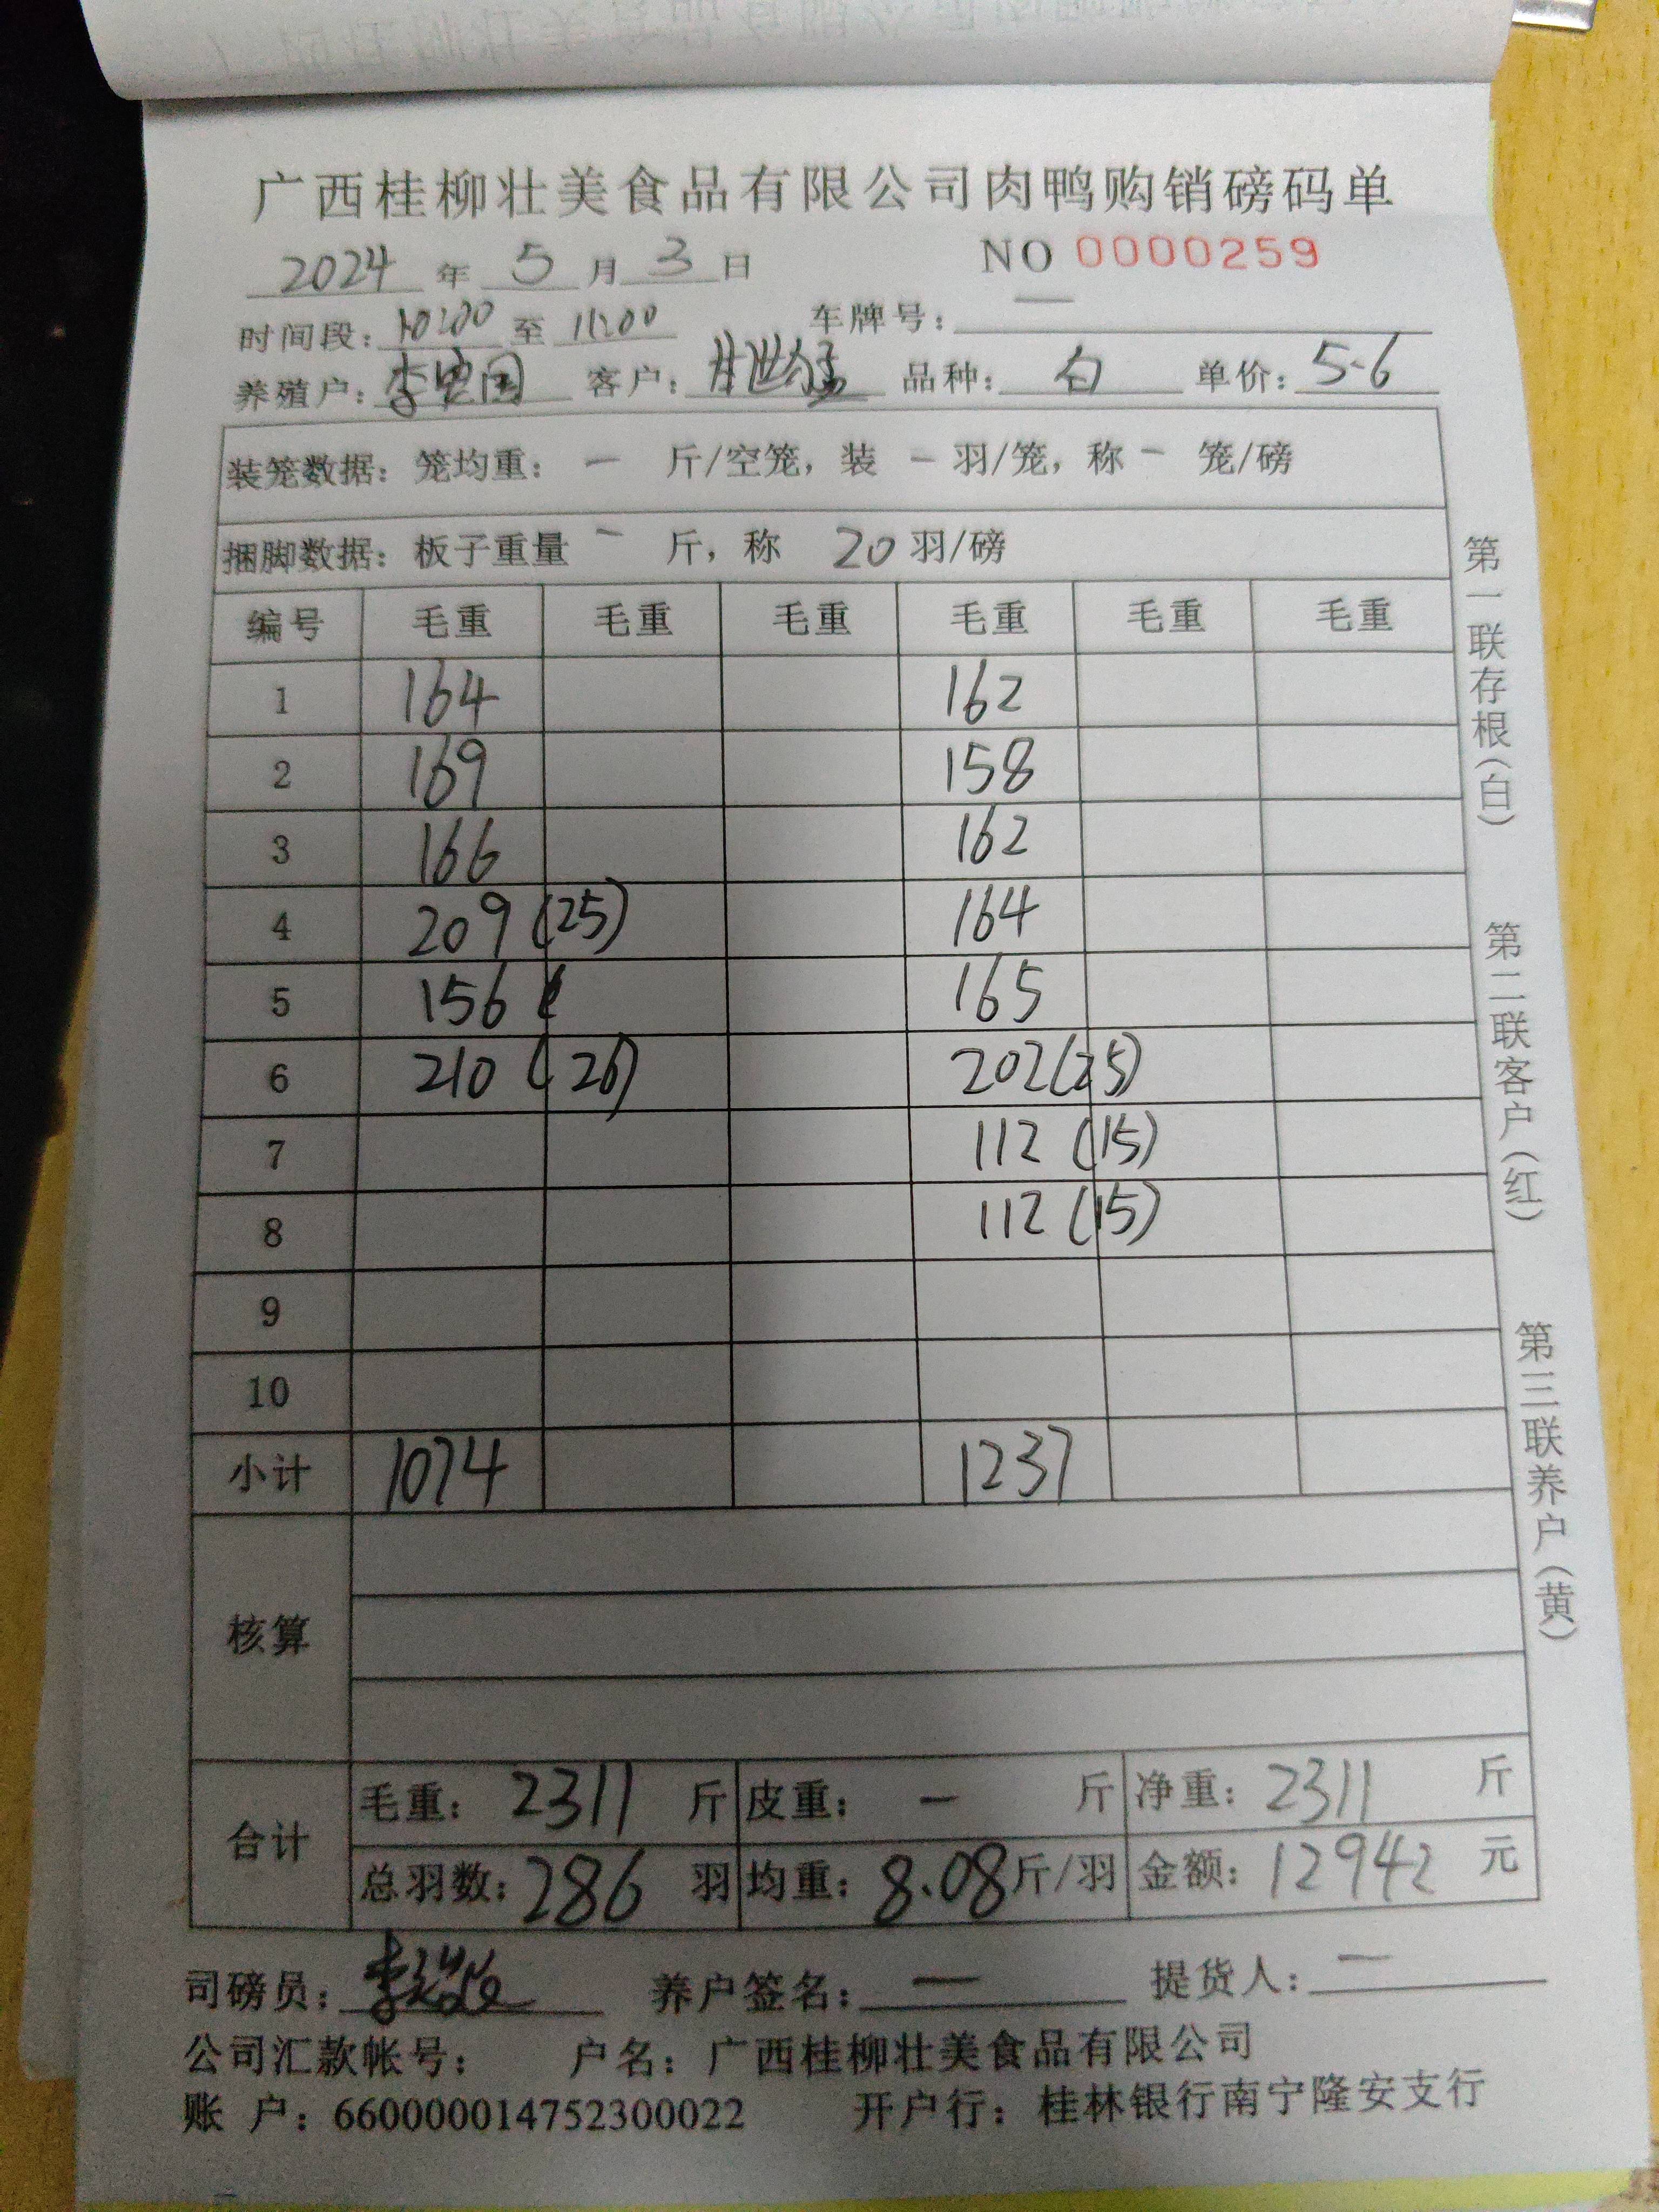 广西桂柳壮美食品有限公司肉鸭购销磅码单
2024 年 5 月 3 日 NO 0000259
时间段: 10:00 至 11:00 车牌号: 一
养殖户: 李 国 客户: 世 品种: 白 单价: 5.6
装笼数据: 笼均重: 一 斤/空笼, 装 一 羽/笼, 称 一 笼/磅
捆脚数据: 板子重量 一 斤, 称 20 羽/磅
编号 毛重 毛重 毛重 毛重 毛重 毛重
1 164 162
2 169 158
3 166 162
4 209 (25) 164
5 156 165
6 210 (26) 202 (25)
7 112 (15)
8 112 (15)
9
10
小计 1074 1237
核算
合计
毛重: 2311 斤 皮重: 一 斤 净重: 2311 斤
总羽数: 286 羽 均重: 8.08 斤/羽 金额: 12942 元
司磅员: 李 养户签名: 一 提货人: 一
公司汇款帐号: 户名: 广西桂柳壮美食品有限公司
账 户: 660000014752300022 开户行: 桂林银行南宁隆安支行
第一联存根(白)
第二联客户(红)
第三联养户(黄)